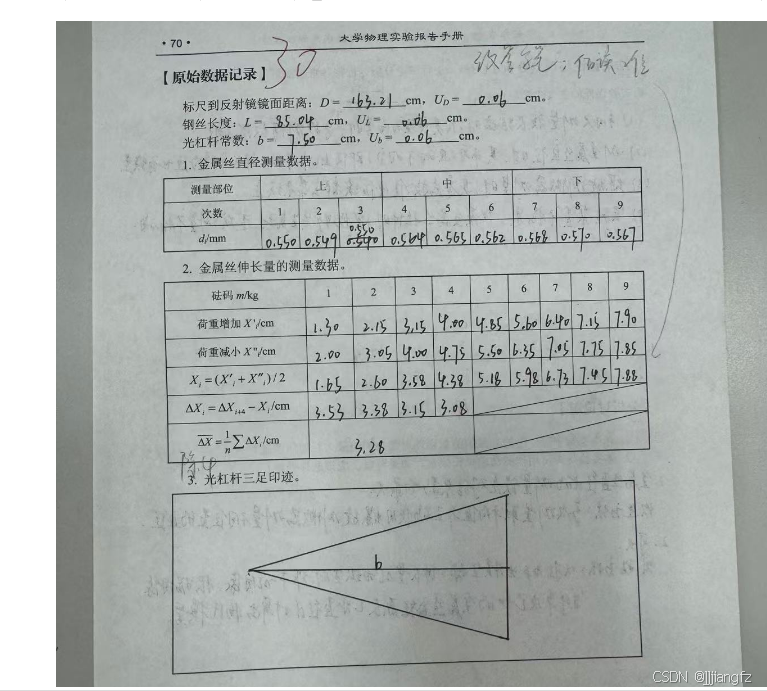 · 70 ·
大学物理实验报告手册
30
【原始数据记录】
标尺到反射镜镜面距离：D= 163.21 cm，U_D= 0.06 cm。
钢丝长度：L= 85.04 cm，U_L= 0.06 cm。
光杠杆常数：b= 7.50 cm，U_b= 0.06 cm。
1. 金属丝直径测量数据。
测量部位 上 中 下
次数 1 2 3 4 5 6 7 8 9
0.550
d_i/mm 0.550 0.549 0.540 0.564 0.565 0.562 0.568 0.570 0.567
2. 金属丝伸长量的测量数据。
砝码 m/kg 1 2 3 4 5 6 7 8 9
荷重增加 X'_i/cm 1.30 2.15 3.15 4.00 4.85 5.60 6.40 7.15 7.90
荷重减小 X"_i/cm 2.00 3.05 4.00 4.75 5.50 6.35 7.05 7.75 7.85
X_i=(X'_i+X"_i)/2 1.65 2.60 3.58 4.38 5.18 5.98 6.73 7.45 7.88
ΔX_i=ΔX_{i+4}−X_i/cm 3.53 3.38 3.15 3.08
ΔX̄=1/n∑ΔX_i/cm 3.28
3. 光杠杆三足印迹。
b
CSDN @jjjiangfz